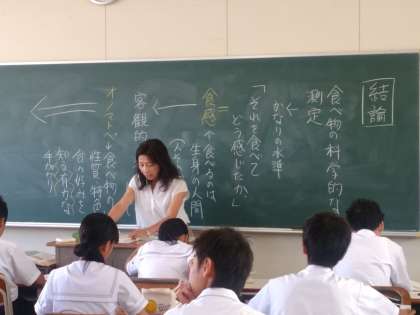 結論
食べ物の科学的な
測定
↓
かなりの水準
「それを食べて
どう感じたか」
＝
食感 ← 食べるのは
生身の人間
客観的
オノマトペ → 食べ物の
性質 特色
知る有力な
手がかり